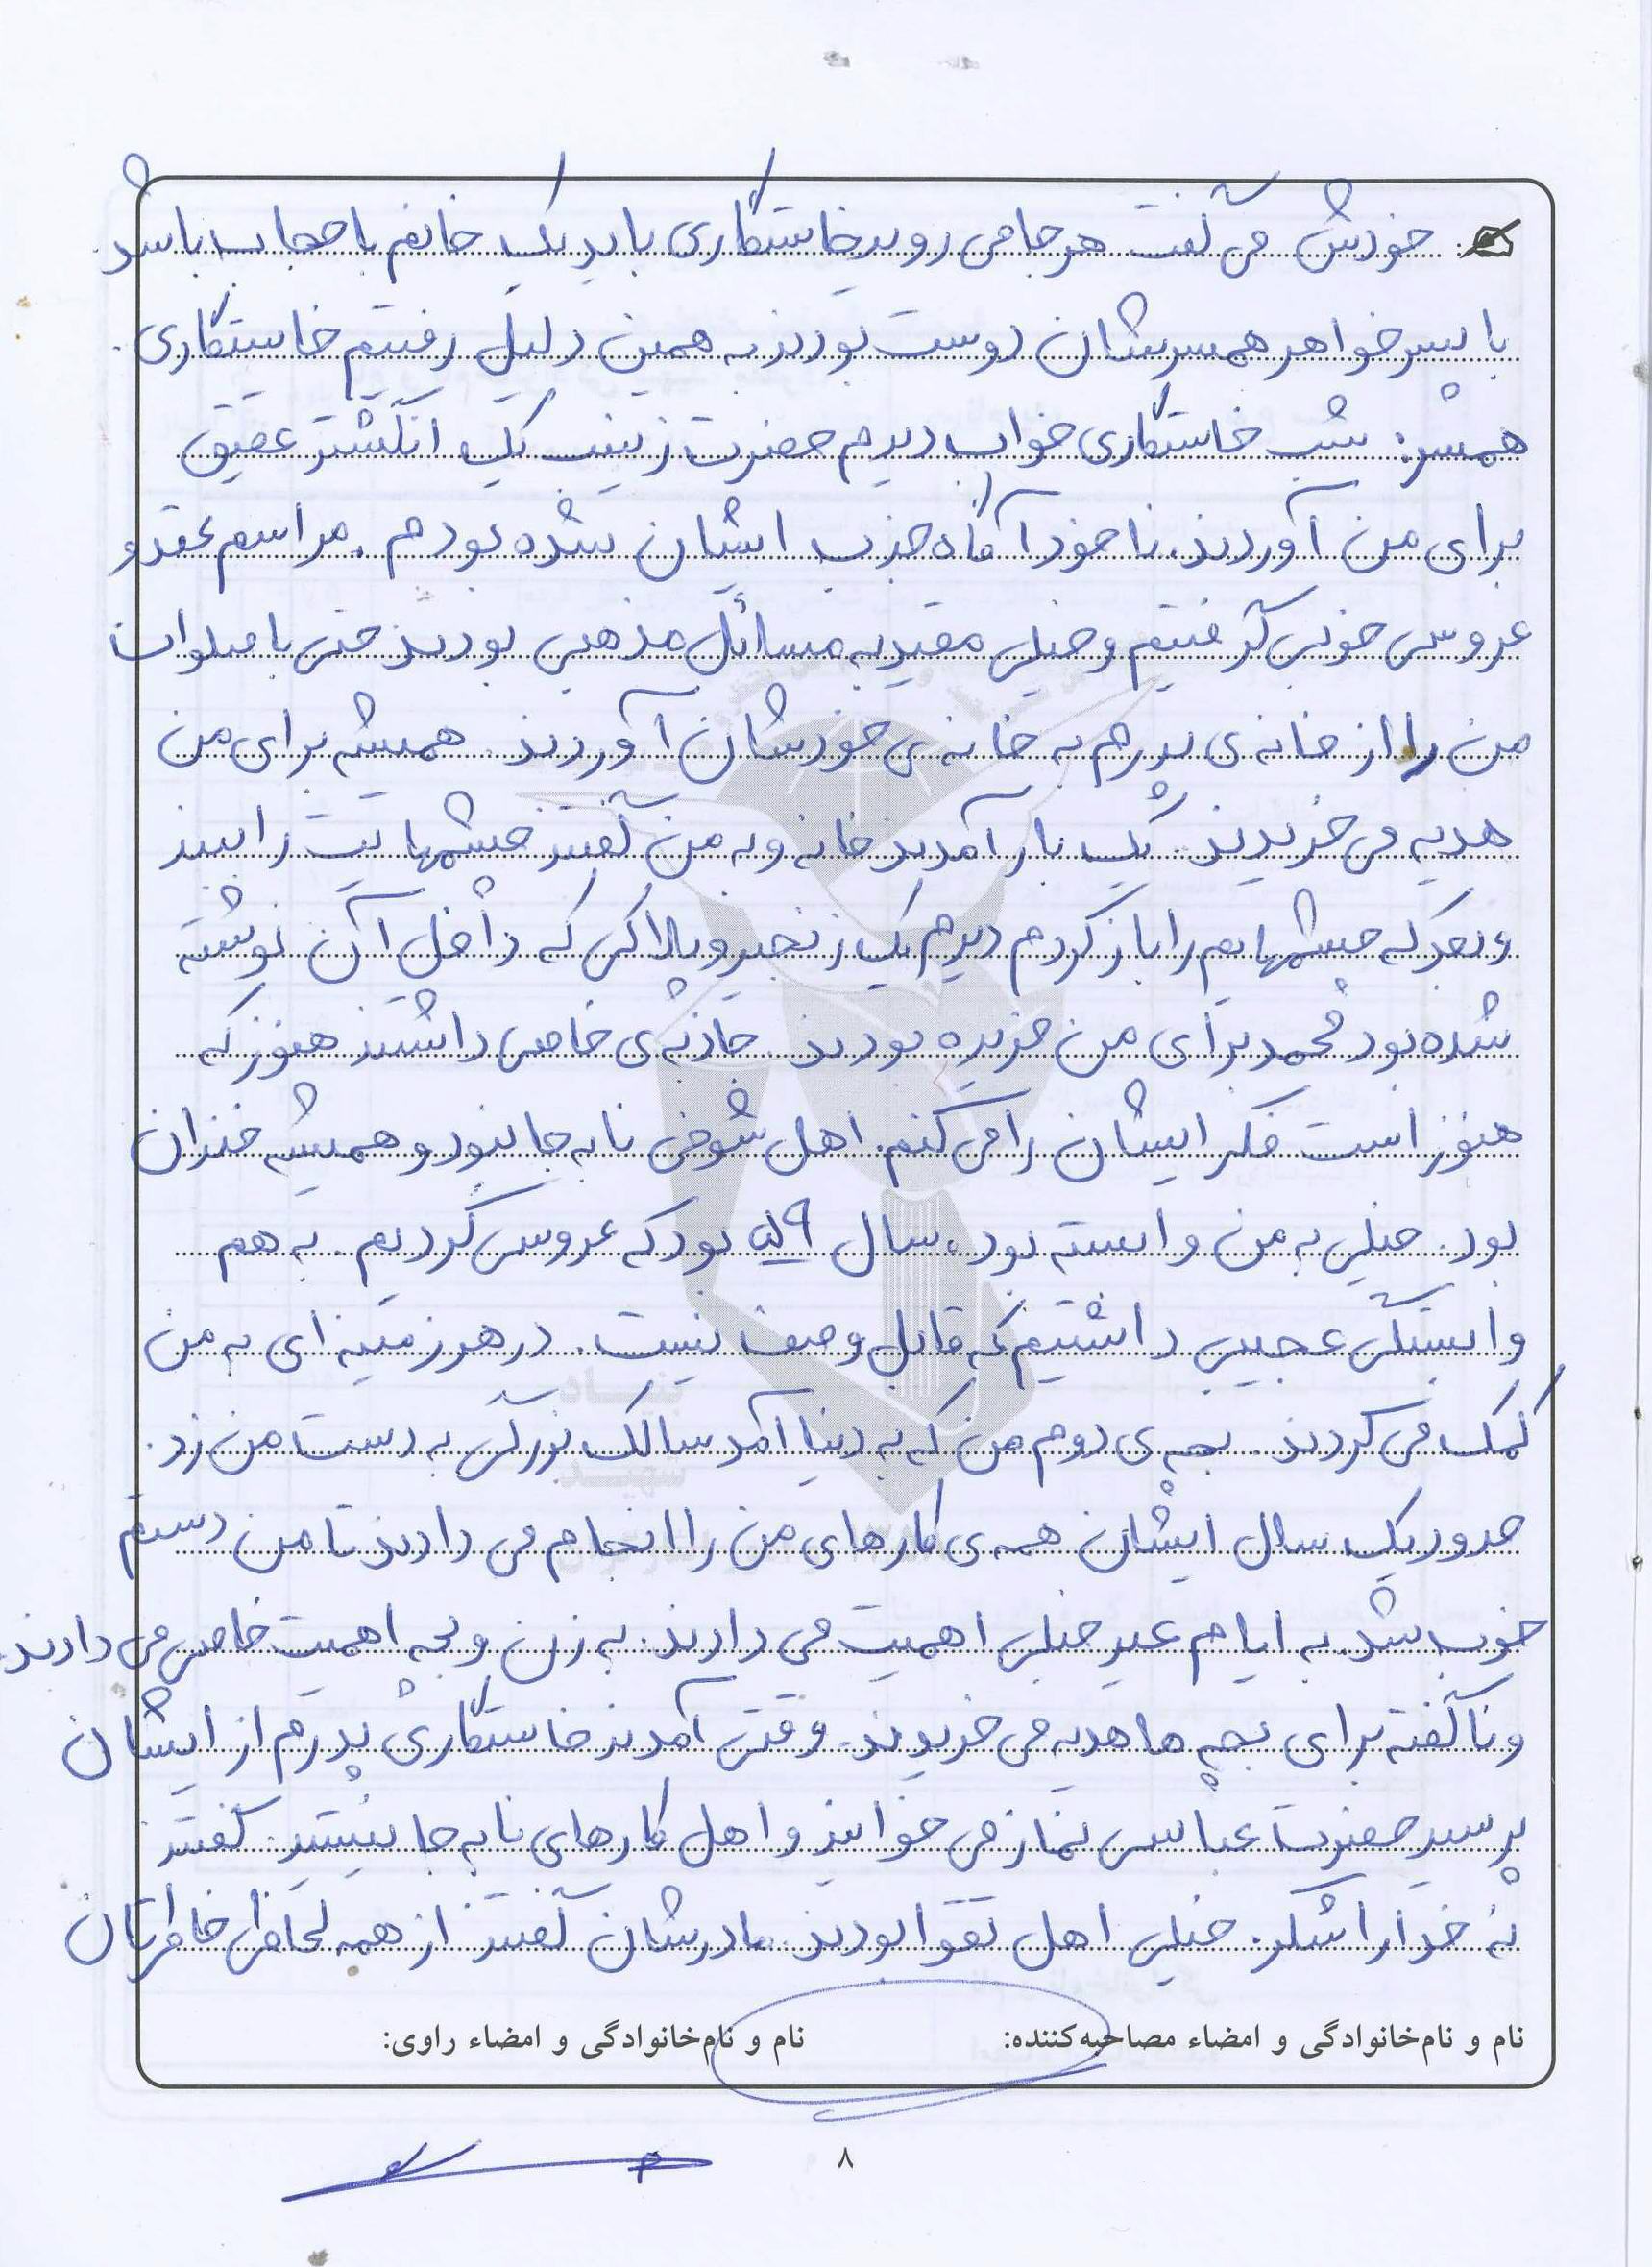 خودش می گفت هر جا می روید خاستگاری باید یک خانم با حجاب باشد.
با پسر خواهر همسرشان دوست بودند به همین دلیل رفتیم خاستگاری.
همسر: شب خاستگاری خواب دیدم حضرت زینب یک انگشتر عقیق
برای من آوردند. ناخودآگاه جذب ایشان شده بودم. مراسم عقد و
عروسی خوبی گرفتیم و خیلی مقید به مسائل مذهبی بودند حتی با صلوات
من را از خانه ی پدرم به خانه ی خودشان آوردند. همیشه برای من
هدیه می خریدند. یک بار آمدند خانه و به من گفتند چشمهایت را ببند
و بعد که چشمهایم را باز کردم دیدم یک زنجیر و پلاکی که داخل آن نوشته
شده بود محمد برای من خریده بودند. جاذبه ی خاصی داشتند هنوز که
هنوز است فکر ایشان را می کنم. اهل شوخی نا به جا نبود و همیشه خندان
بود. خیلی به من وابسته بود. سال ۵۹ بود که عروسی کردیم. به هم
وابستگی عجیبی داشتیم که قابل وصف نیست. در هر زمینه ای به من
کمک می کردند. بچه ی دوم من که به دنیا آمد سالک بزرگی به دست من زد.
حدود یک سال ایشان همه ی کارهای من را انجام می دادند تا من دستم
خوب شد. به ایام عید خیلی اهمیت می دادند. به زن و بچه اهمیت خاصی می دادند.
و ناگفته برای بچه ها هدیه می خریدند. وقتی آمدند خاستگاری پدرم از ایشان
پرسید حضرت عباسی نماز می خوانید و اهل کارهای نا به جا نیستید. گفتند
نه خدا را شکر. خیلی اهل تقوا بودند. مادرشان گفتند از همه لحاظ خاطرتان
نام و نام‌خانوادگی و امضاء مصاحبه‌کننده: نام و نام‌خانوادگی و امضاء راوی:
۸